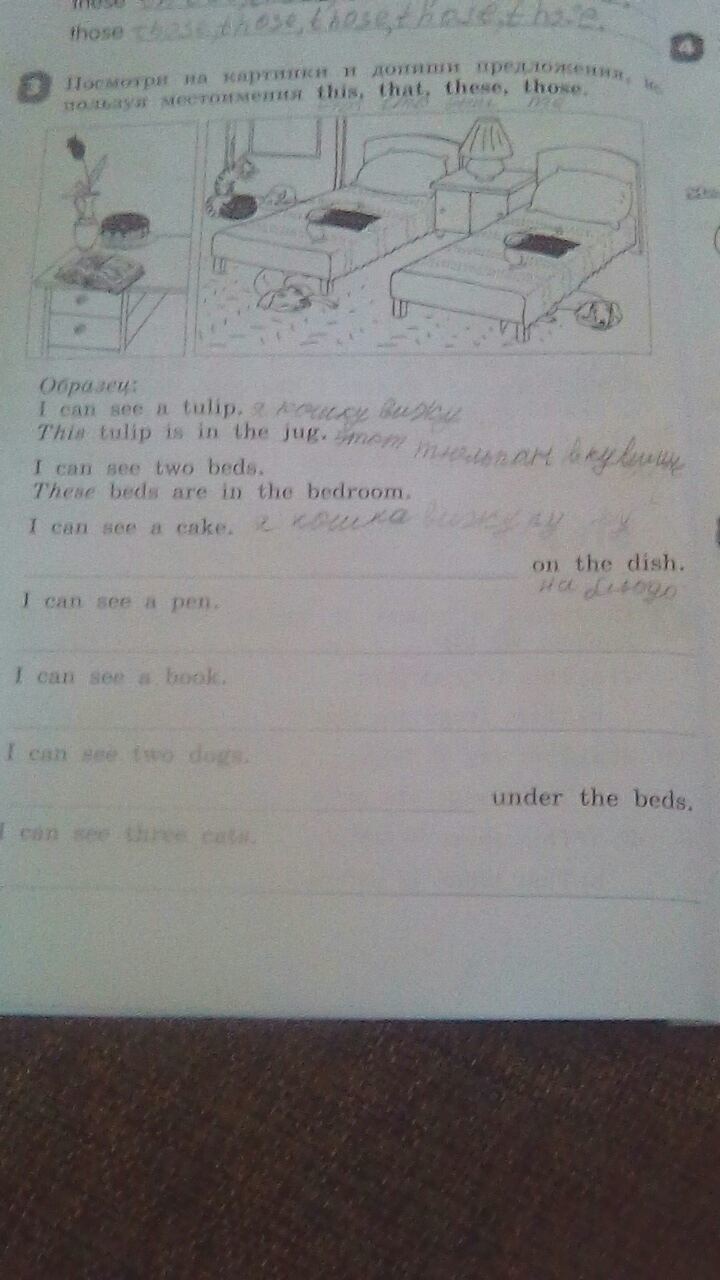 those those, those, those, those, those.
4
3 Посмотри на картинки и допиши предложения, ис
пользуя местоимения this, that, these, those.
те
Образец:
I can see a tulip. я кошку вижу
This tulip is in the jug. этот тюльпан в кувшине
I can see two beds.
These beds are in the bedroom.
I can see a cake. я кошка вижу
on the dish.
на блюдо
I can see a pen.
I can see a book.
I can see two dogs.
under the beds.
I can see three cats.